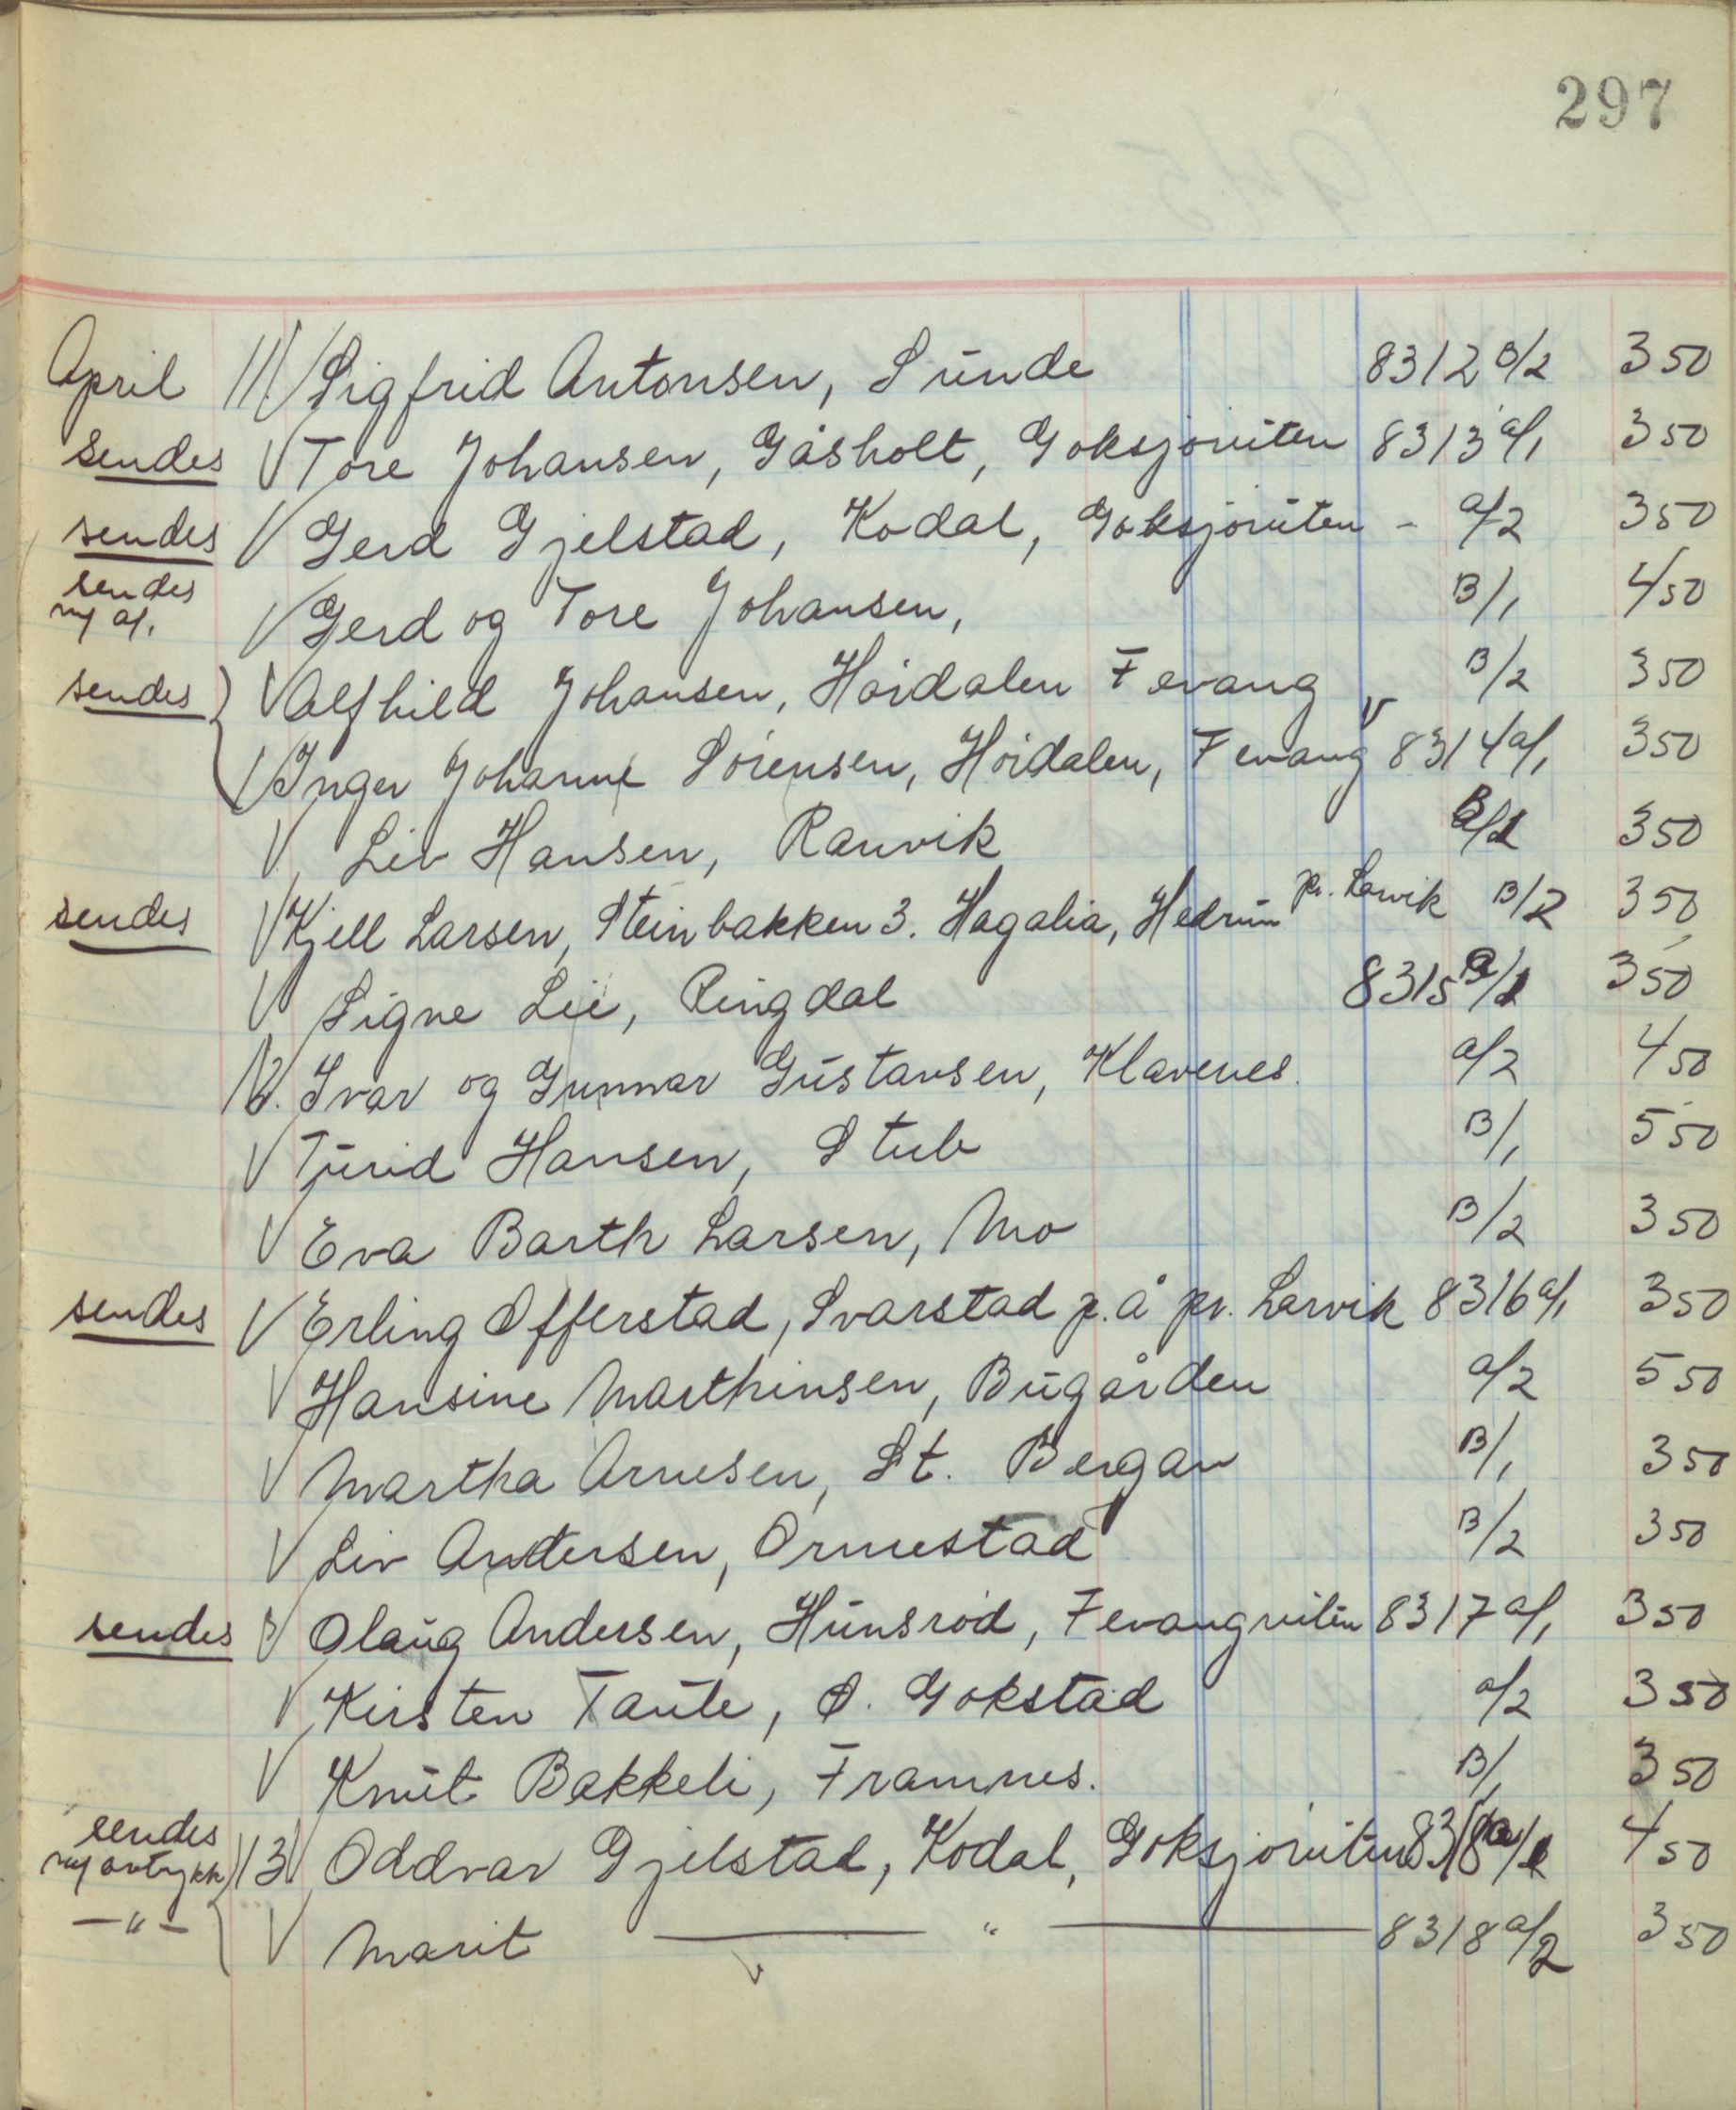 297
April 11 Sigfrid Antonsen, Sunde 8312 B/2 3 50
sendes Tore Johansen, Gåsholt, Goksjøruten 8313 a/1 3 50
sendes Gerd Gjelstad, Kodal, Goksjøruten - a/2 3 50
sendes m/ a/1 Gerd og Tore Johansen, B/1 4 50
sendes Alfhild Johansen, Høidalen Fevang B/2 3 50
Inger Johanne Sørensen, Høidalen, Fevang 8314 a/1 3 50
Liv Hansen, Ranvik 3 50
sendes Kjell Larsen, Steinbakken 3. Hagalia, Hedrum pr. Larvik B/2 3 50
Signe Lie, Ringdal 8315 a/1 3 50
12. Ivar og Gunnar Gustavsen, Klavenes. a/2 4 50
Turid Hansen, Stub B/1 5 50
Eva Barth Larsen, Mo B/2 3 50
sendes Erling Offerstad, Svarstad p.å pr. Larvik 8316 a/1 3 50
Hansine Marthinsen, Bugården a/2 5 50
Martha Arnesen, St. Bergan B/1 3 50
Liv Andersen, Ormestad B/2 3 50
sendes Olaug Andersen, Hunsrød, Fevangruten 8317 a/1 3 50
Kirsten Taule, Ø. Gokstad a/2 3 50
Knut Bakkeli, Framnes. B/1 3 50
sendes m/ avtrykk 13 Oddvar Gjelstad, Kodal, Goksjøruten 8318 a/1 4 50
— " — Marit — " — 8318 a/2 3 50